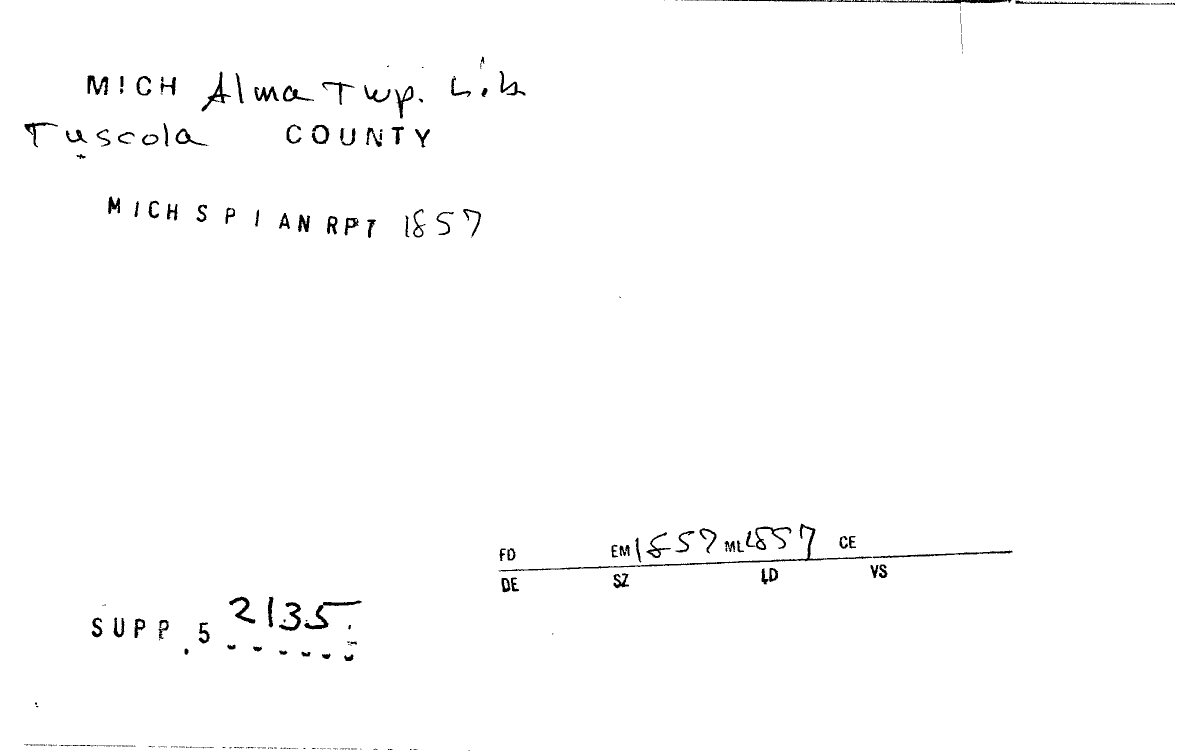 MICH Alma Twp. Lib
Tuscola COUNTY
MICH S P I AN RPT 1857
FD EM 1857 ML 1857 CE
DE SZ LD VS
SUPP.5 2135